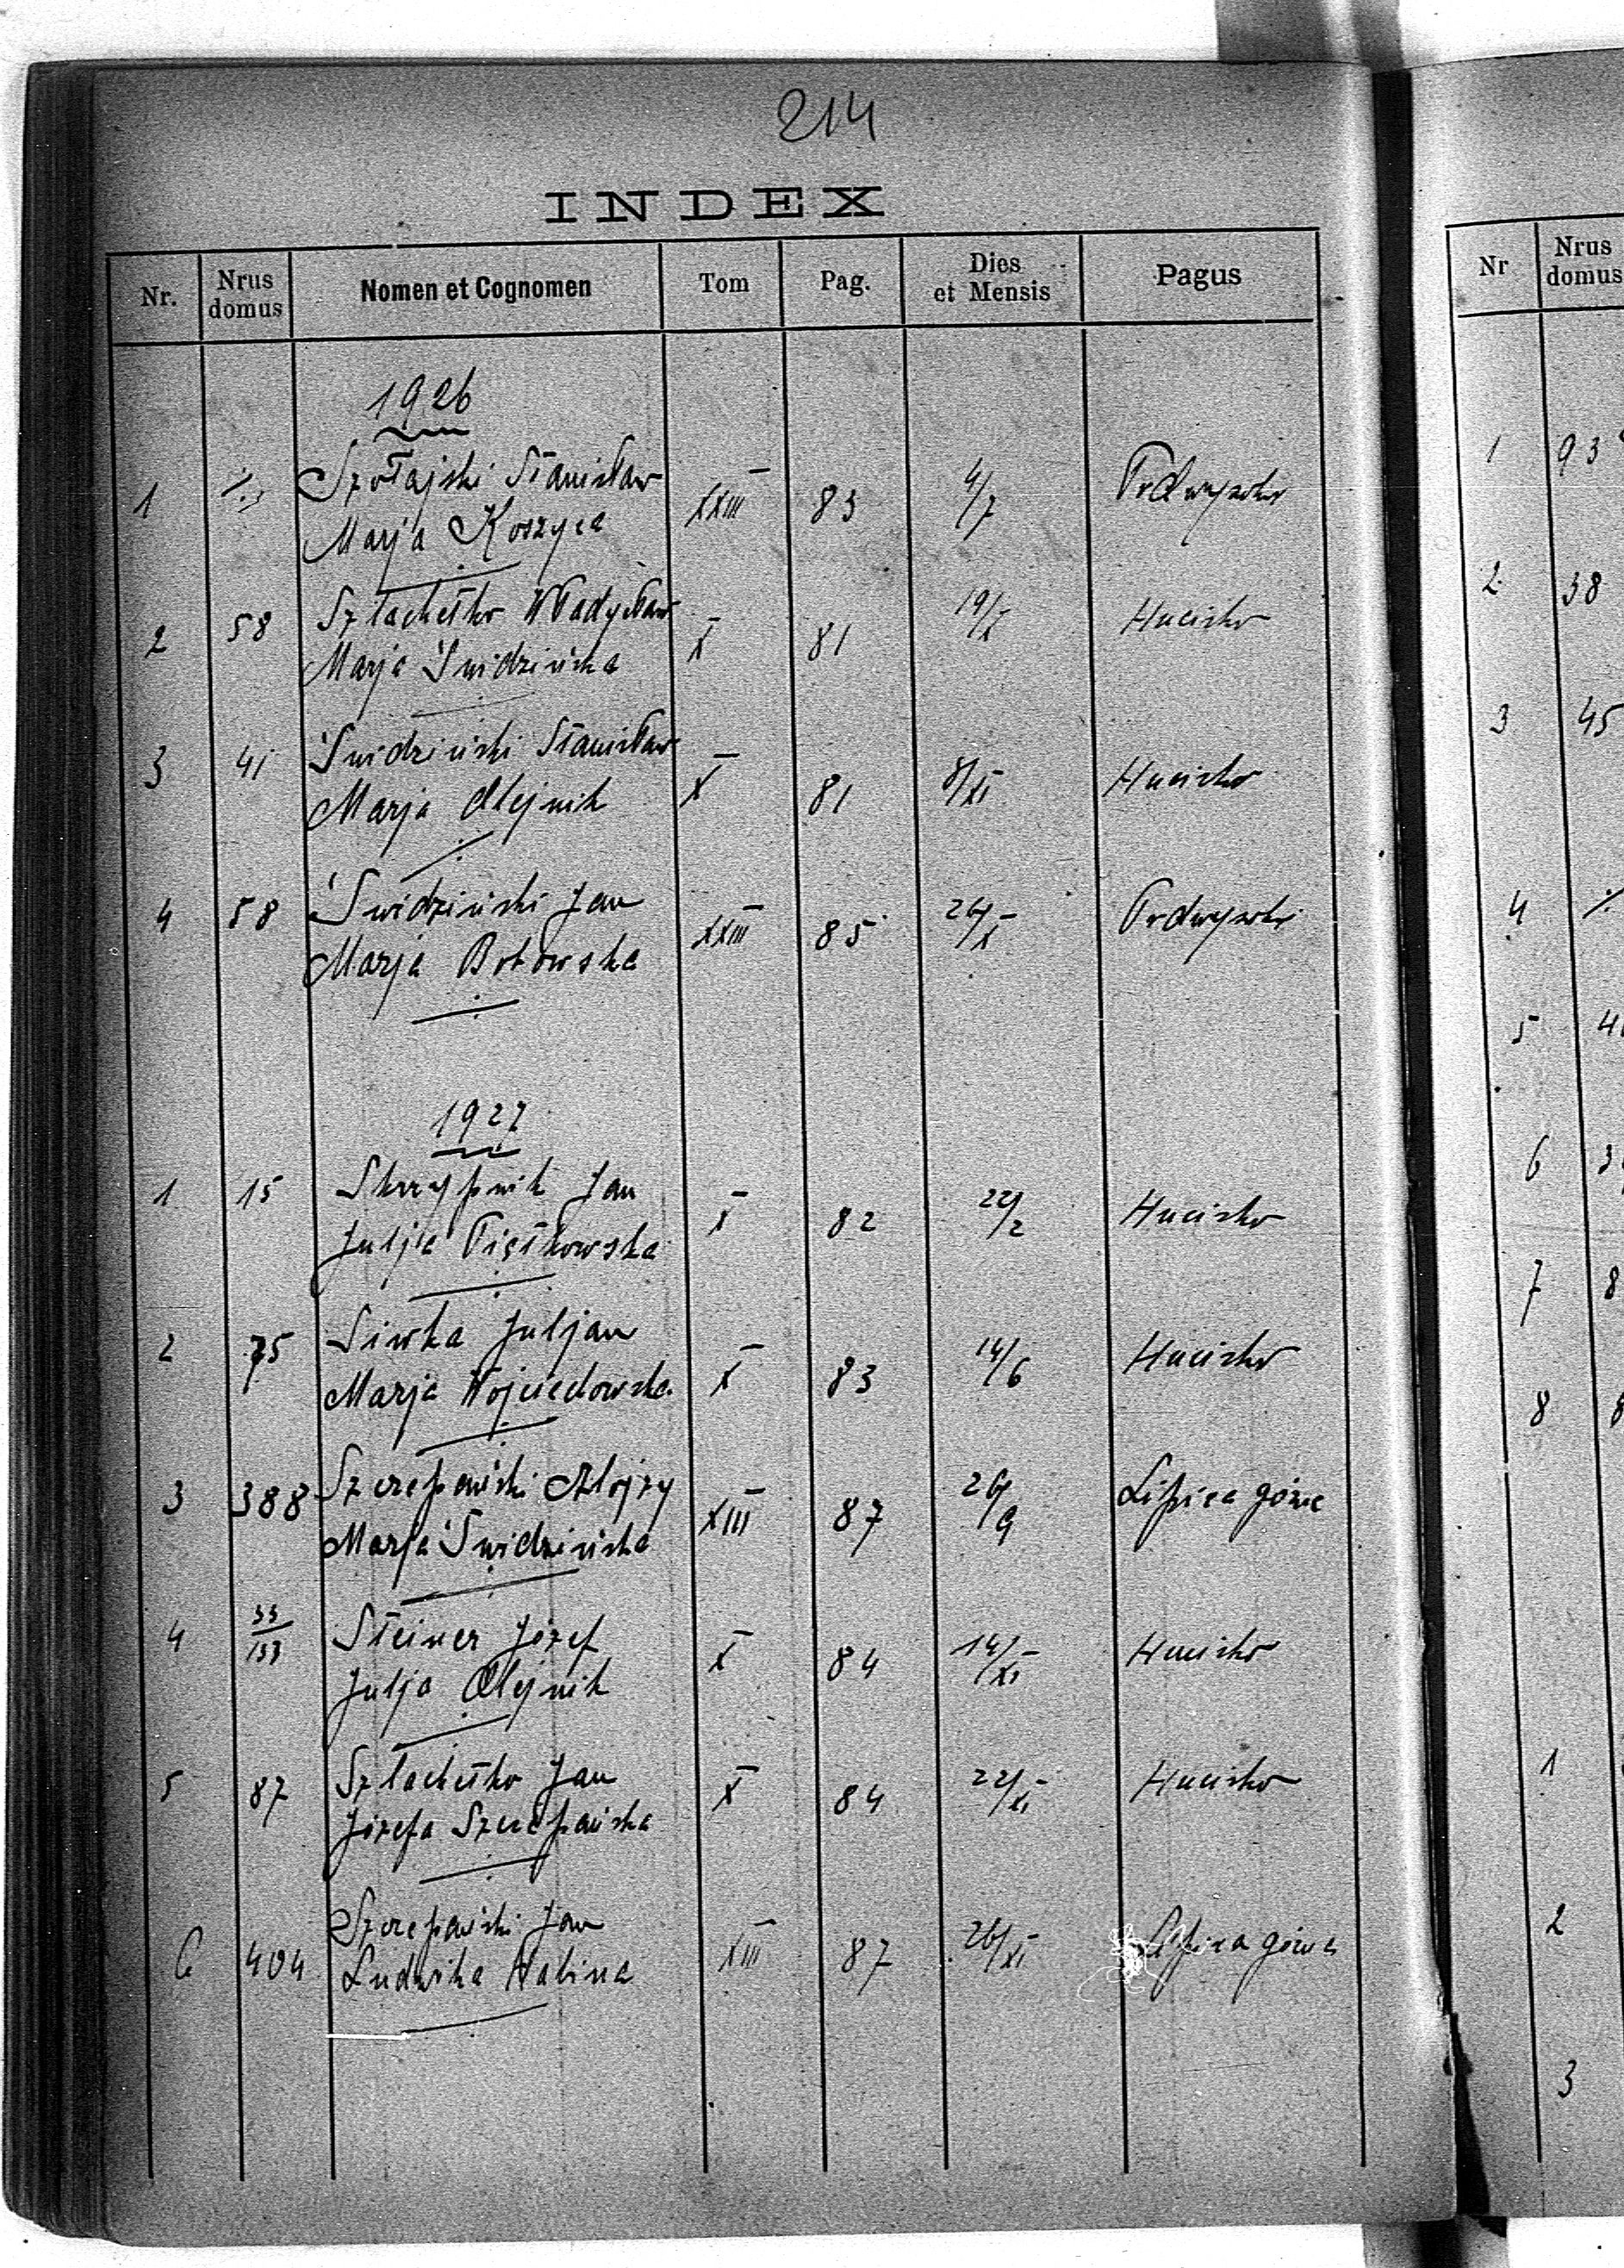 214
INDEX
Nr. Nrus domus Nomen et Cognomen Tom Pag. Dies et Mensis Pagus
1926
1 Szołajski Stanisław XXIII 83 4/7
Marja Koszyca
2 58 Szlachetko Władysław X 81 19/X Hucisko
Marja Świdzińska
3 41 Świdziński Stanisław X 81 8/XI Hucisko
Marja Olejnik
4 58 Świdziński Jan XXIII 85 Podwysokie
Marja
1927
1 15 Skrzypnik Jan X 82 22/2 Hucisko
Julja Piętkowska
2 75 Siwka Juljan X 83 14/6 Hucisko
Marja Wojciechowska
3 388 Szczepański Alojzy XIII 87 26/9 Lipica górna
Marja Świdzińska
4 33/133 Steiner Józef X 84 14/XI Hucisko
Julja Olejnik
5 87 Szlachetko Jan X 84 22/XI Hucisko
Józefa Szczepańska
6 404 Szczepański Jan XIII 87 26/XI Lipica górna
Ludwika Halina
Nr Nrus domus
1 93
2 38
3 45
4
5
6
7
8
1
2
3